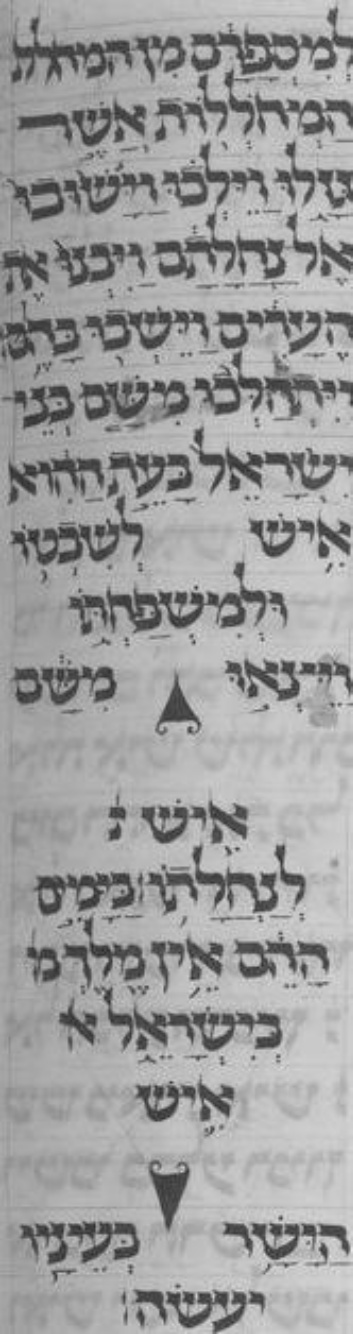 לְמִסְפָּרָם מִן המחלת
הַמְּחֹלְלוֹת אֲשֶׁר
גָּזָלוּ וַיֵּלְכוּ וַיָּשׁוּבוּ
אֶל נַחֲלָתָם וַיִּבְנוּ אֶת
הֶעָרִים וַיֵּשְׁבוּ בָּהֶם
וַיִּתְהַלְּכוּ מִשָּׁם בְּנֵי
יִשְׂרָאֵל בָּעֵת הַהִיא
אִישׁ לְשִׁבְטוֹ
וּלְמִשְׁפַּחְתּוֹ
וַיֵּצְאוּ מִשָּׁם
אִישׁ נ
לְנַחֲלָתוֹ׃ בַּיָּמִים
הָהֵם אֵין מֶלֶךְ מ
בְּיִשְׂרָאֵל א
אִישׁ
הַיָּשָׁר בְּעֵינָיו
יַעֲשֶׂה׃